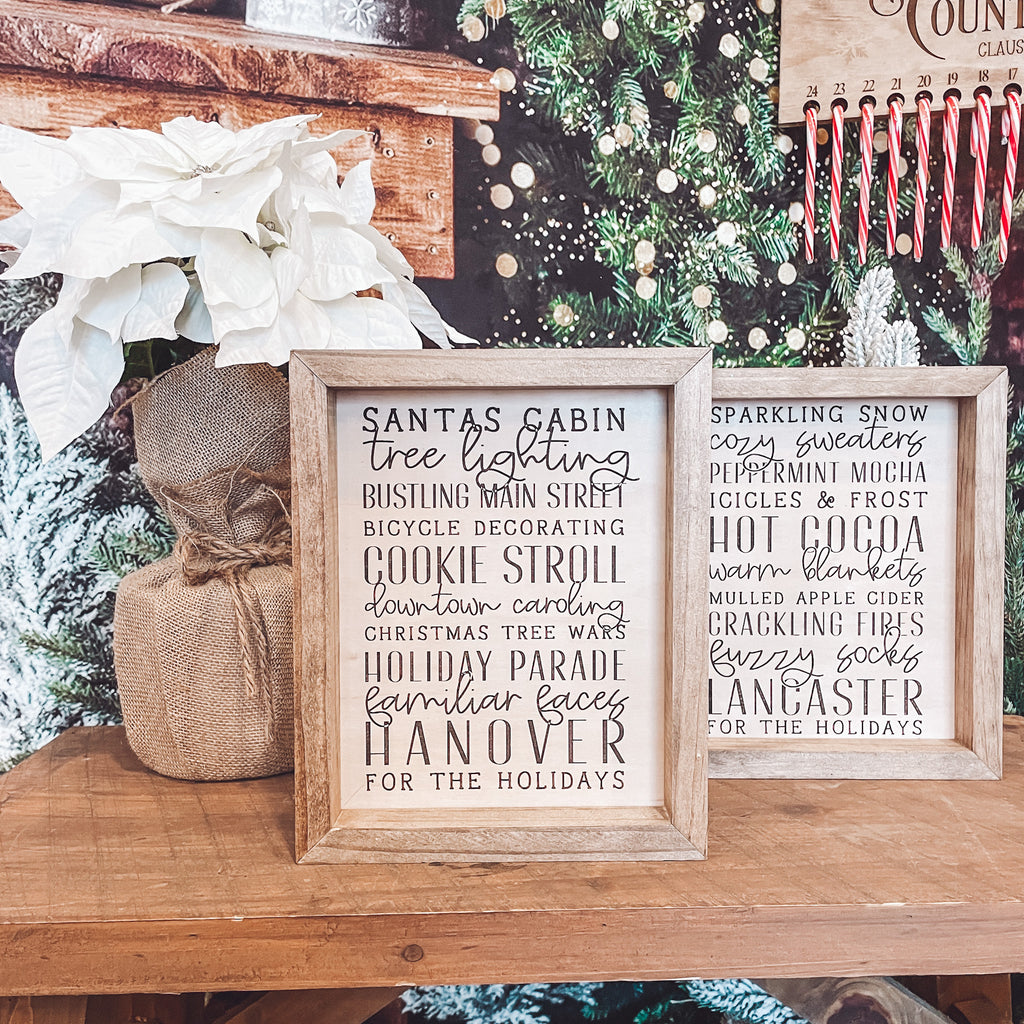 SANTAS CABIN
tree lighting
BUSTLING MAIN STREET
BICYCLE DECORATING
COOKIE STROLL
downtown caroling
CHRISTMAS TREE WARS
HOLIDAY PARADE
familiar faces
HANOVER
FOR THE HOLIDAYS
SPARKLING SNOW
cozy sweaters
PEPPERMINT MOCHA
ICICLES & FROST
HOT COCOA
warm blankets
MULLED APPLE CIDER
CRACKLING FIRES
fuzzy socks
LANCASTER
FOR THE HOLIDAYS
COUNT
CLAUS
24 23 22 21 20 19 18 17